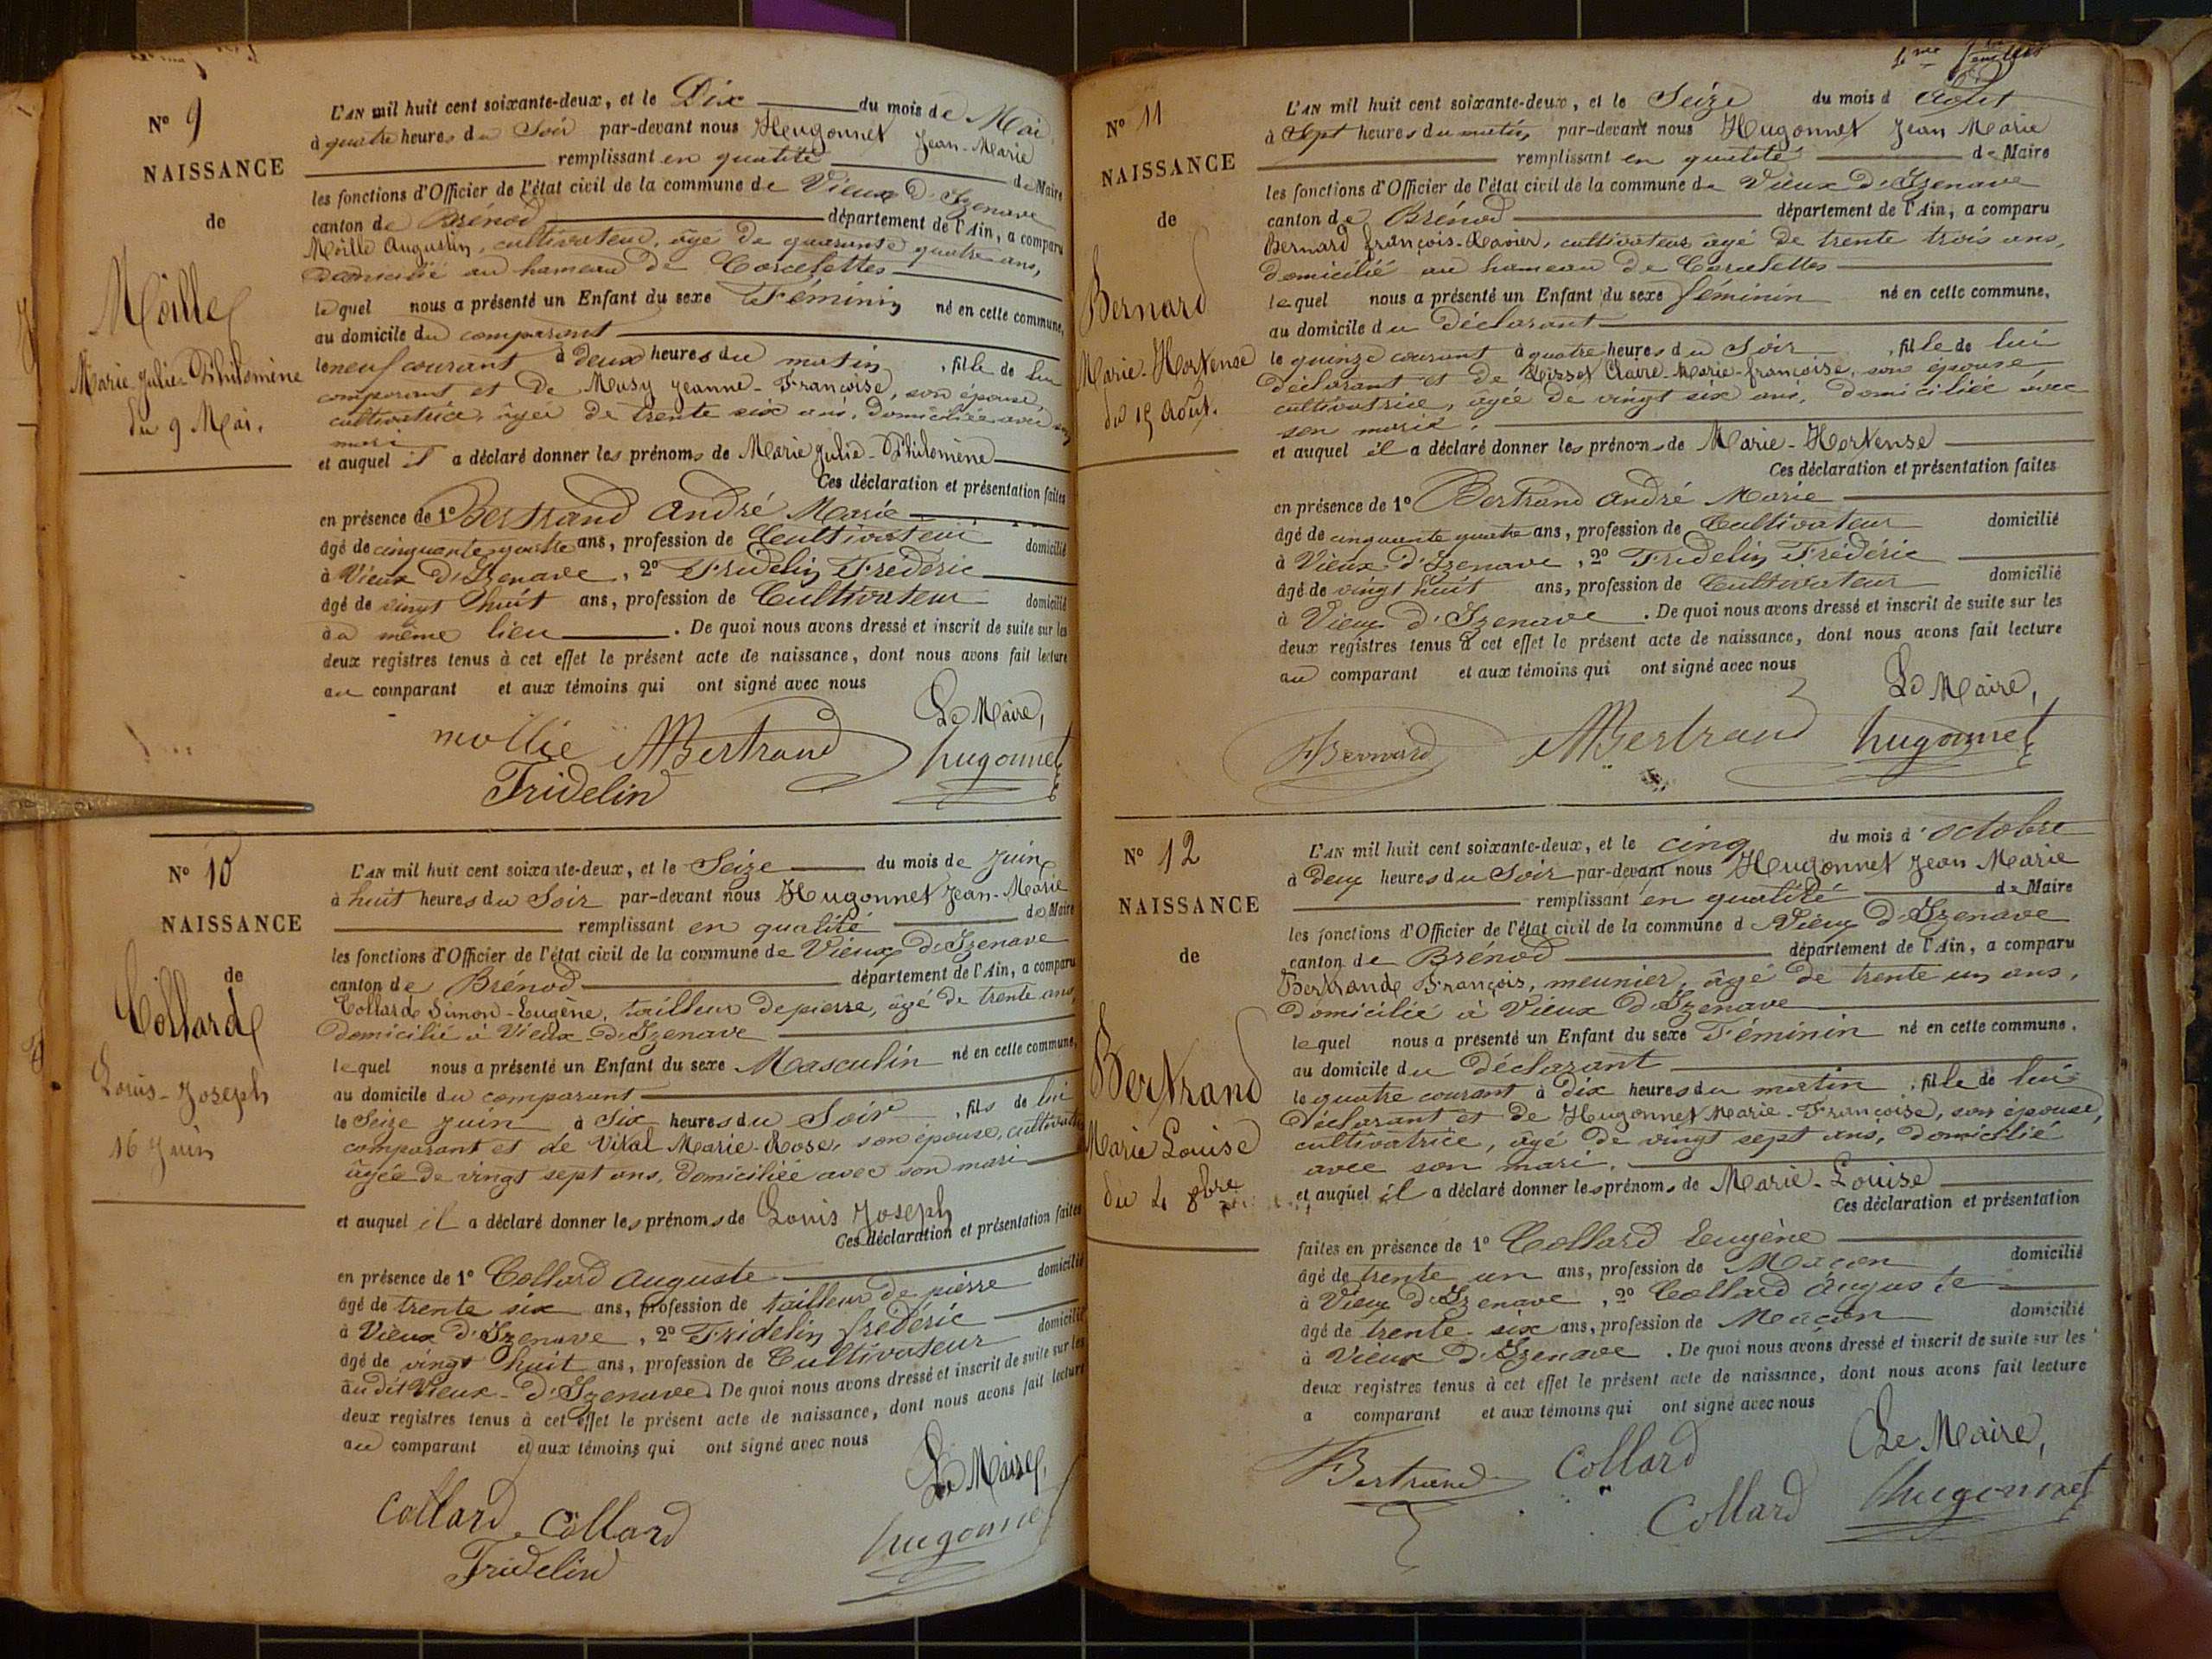 N° 9
NAISSANCE
de
Moille
Marie Julie-Philomène
du 9 Mai.
L'AN mil huit cent soixante-deux, et le Dix du mois de Mai
à quatre heures du Soir par-devant nous Hugonnet Jean-Marie
remplissant en qualité de Maire
les fonctions d'Officier de l'état civil de la commune de Vieux D'Izenave
canton de Brénod département de l'Ain, a comparu
Moille Augustin, cultivateur, âgé de quarante quatre ans,
domicilié au hameau de Corcelettes
lequel nous a présenté un Enfant du sexe Féminin né en cette commune,
au domicile du comparant
le neuf courant à deux heures du matin, fille de lui
comparant et de Musy Jeanne-Françoise, son épouse,
cultivatrice, âgée de trente six ans, domiciliée avec son
mari
et auquel il a déclaré donner les prénoms de Marie Julie-Philomène
Ces déclaration et présentation faites
en présence de 1° Bertrand André Marie
âgé de cinquante quatre ans, profession de Cultivateur domicilié
à Vieux D'Izenave, 2° Fridelin Frédéric
âgé de vingt huit ans, profession de Cultivateur domicilié
même lieu. De quoi nous avons dressé et inscrit de suite sur les
deux registres tenus à cet effet le présent acte de naissance, dont nous avons fait lecture
au comparant et aux témoins qui ont signé avec nous
Le Maire,
mollie ABertrand hugonnet
Fridelin
N° 10
NAISSANCE
de
Collard
Louis-Joseph
16 Juin
L'AN mil huit cent soixante-deux, et le Seize du mois de Juin
à huit heures du Soir par-devant nous Hugonnet Jean-Marie
remplissant en qualité de Maire
les fonctions d'Officier de l'état civil de la commune de Vieux D'Izenave
canton de Brénod département de l'Ain, a comparu
Collard Simon-Eugène, tailleur de pierre, âgé de trente ans,
domicilié à Vieux D'Izenave
lequel nous a présenté un Enfant du sexe Masculin né en cette commune,
au domicile du comparant
le Seize Juin à Six heures du Soir, fils de lui
comparant et de Vital Marie-Rose, son épouse, cultivatrice
âgée de vingt sept ans, domiciliée avec son mari
et auquel il a déclaré donner les prénoms de Louis Joseph
Ces déclaration et présentation faites
en présence de 1° Collard Auguste
âgé de trente six ans, profession de tailleur de pierre domicilié
à Vieux D'Izenave, 2° Fridelin frédéric
âgé de vingt huit ans, profession de Cultivateur domicilié
audit Vieux-D'Izenave. De quoi nous avons dressé et inscrit de suite sur les
deux registres tenus à cet effet le présent acte de naissance, dont nous avons fait lecture
au comparant et aux témoins qui ont signé avec nous
Le Maire,
Collard Collard hugonnet
Fridelin
N° 11
NAISSANCE
de
Bernard
Marie-Hortense
du 15 Août.
L'AN mil huit cent soixante-deux, et le Seize du mois d Août
à Sept heures du matin, par-devant nous Hugonnet Jean Marie
remplissant en qualité de Maire
les fonctions d'Officier de l'état civil de la commune de Vieux D'Izenave
canton de Brénod département de l'Ain, a comparu
Bernard françois-Xavier, cultivateur âgé de trente trois ans,
domicilié au hameau de Corcelettes
lequel nous a présenté un Enfant du sexe féminin né en cette commune,
au domicile du Déclarant
le quinze courant à quatre heures du Soir, fille de lui
déclarant et de Claire-Marie-françoise, son épouse
cultivatrice, âgée de vingt six ans, domiciliée avec
son marie.
et auquel il a déclaré donner les prénoms de Marie-Hortense
Ces déclaration et présentation faites
en présence de 1° Bertrand André Marie
âgé de cinquante quatre ans, profession de Cultivateur domicilié
à Vieux D'Izenave, 2° Fridelin Frédéric
âgé de vingt huit ans, profession de Cultivateur domicilié
à Vieux D'Izenave. De quoi nous avons dressé et inscrit de suite sur les
deux registres tenus à cet effet le présent acte de naissance, dont nous avons fait lecture
au comparant et aux témoins qui ont signé avec nous
Le Maire,
Bernard ABertrand hugonnet
N° 12
NAISSANCE
de
Bertrand
Marie Louise
du 4 8bre
L'AN mil huit cent soixante-deux, et le cinq du mois d'octobre
à Deux heures du Soir par-devant nous Hugonnet Jean Marie
remplissant en qualité de Maire
les fonctions d'Officier de l'état civil de la commune d Vieux D'Izenave
canton de Brénod département de l'Ain, a comparu
Bertrand François, meunier, âgé de trente un ans,
domicilié à Vieux D'Izenave
lequel nous a présenté un Enfant du sexe Féminin né en cette commune,
au domicile du déclarant
le quatre courant à dix heures du matin, fille de lui
Déclarant et de Hugonnet Marie-Françoise, son épouse,
cultivatrice, âgé de vingt sept ans, domicilié
avec son mari.
et auquel il a déclaré donner les prénoms de Marie-Louise
Ces déclaration et présentation
faites en présence de 1° Collard Eugène
âgé de trente un ans, profession de Maçon domicilié
à Vieux D'Izenave, 2° Collard Auguste
âgé de trente-six ans, profession de Maçon domicilié
à Vieux D'Izenave. De quoi nous avons dressé et inscrit de suite sur les
deux registres tenus à cet effet le présent acte de naissance, dont nous avons fait lecture
a comparant et aux témoins qui ont signé avec nous
Le Maire,
FBertrand Collard
Collard hugonnet